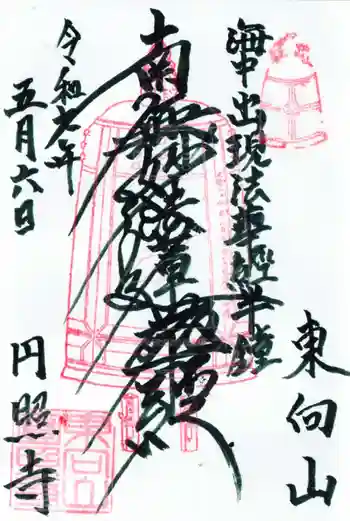 海中出現法華經半鐘
東向山
南無
令和元年
五月六日
円照寺